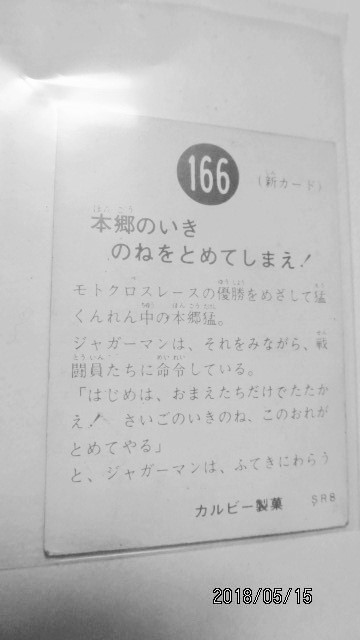 166
(新カード)
本郷のいき
のねをとめてしまえ!
モトクロスレースの優勝をめざして猛
くんれん中の本郷猛。
ジャガーマンは、それをみながら、戦
闘員たちに命令している。
「はじめは、おまえたちだけでたたか
え! さいごのいきのね、このおれが
とめてやる」
と、ジャガーマンは、ふてきにわらう
カルビー製菓 SR8
2018/05/15